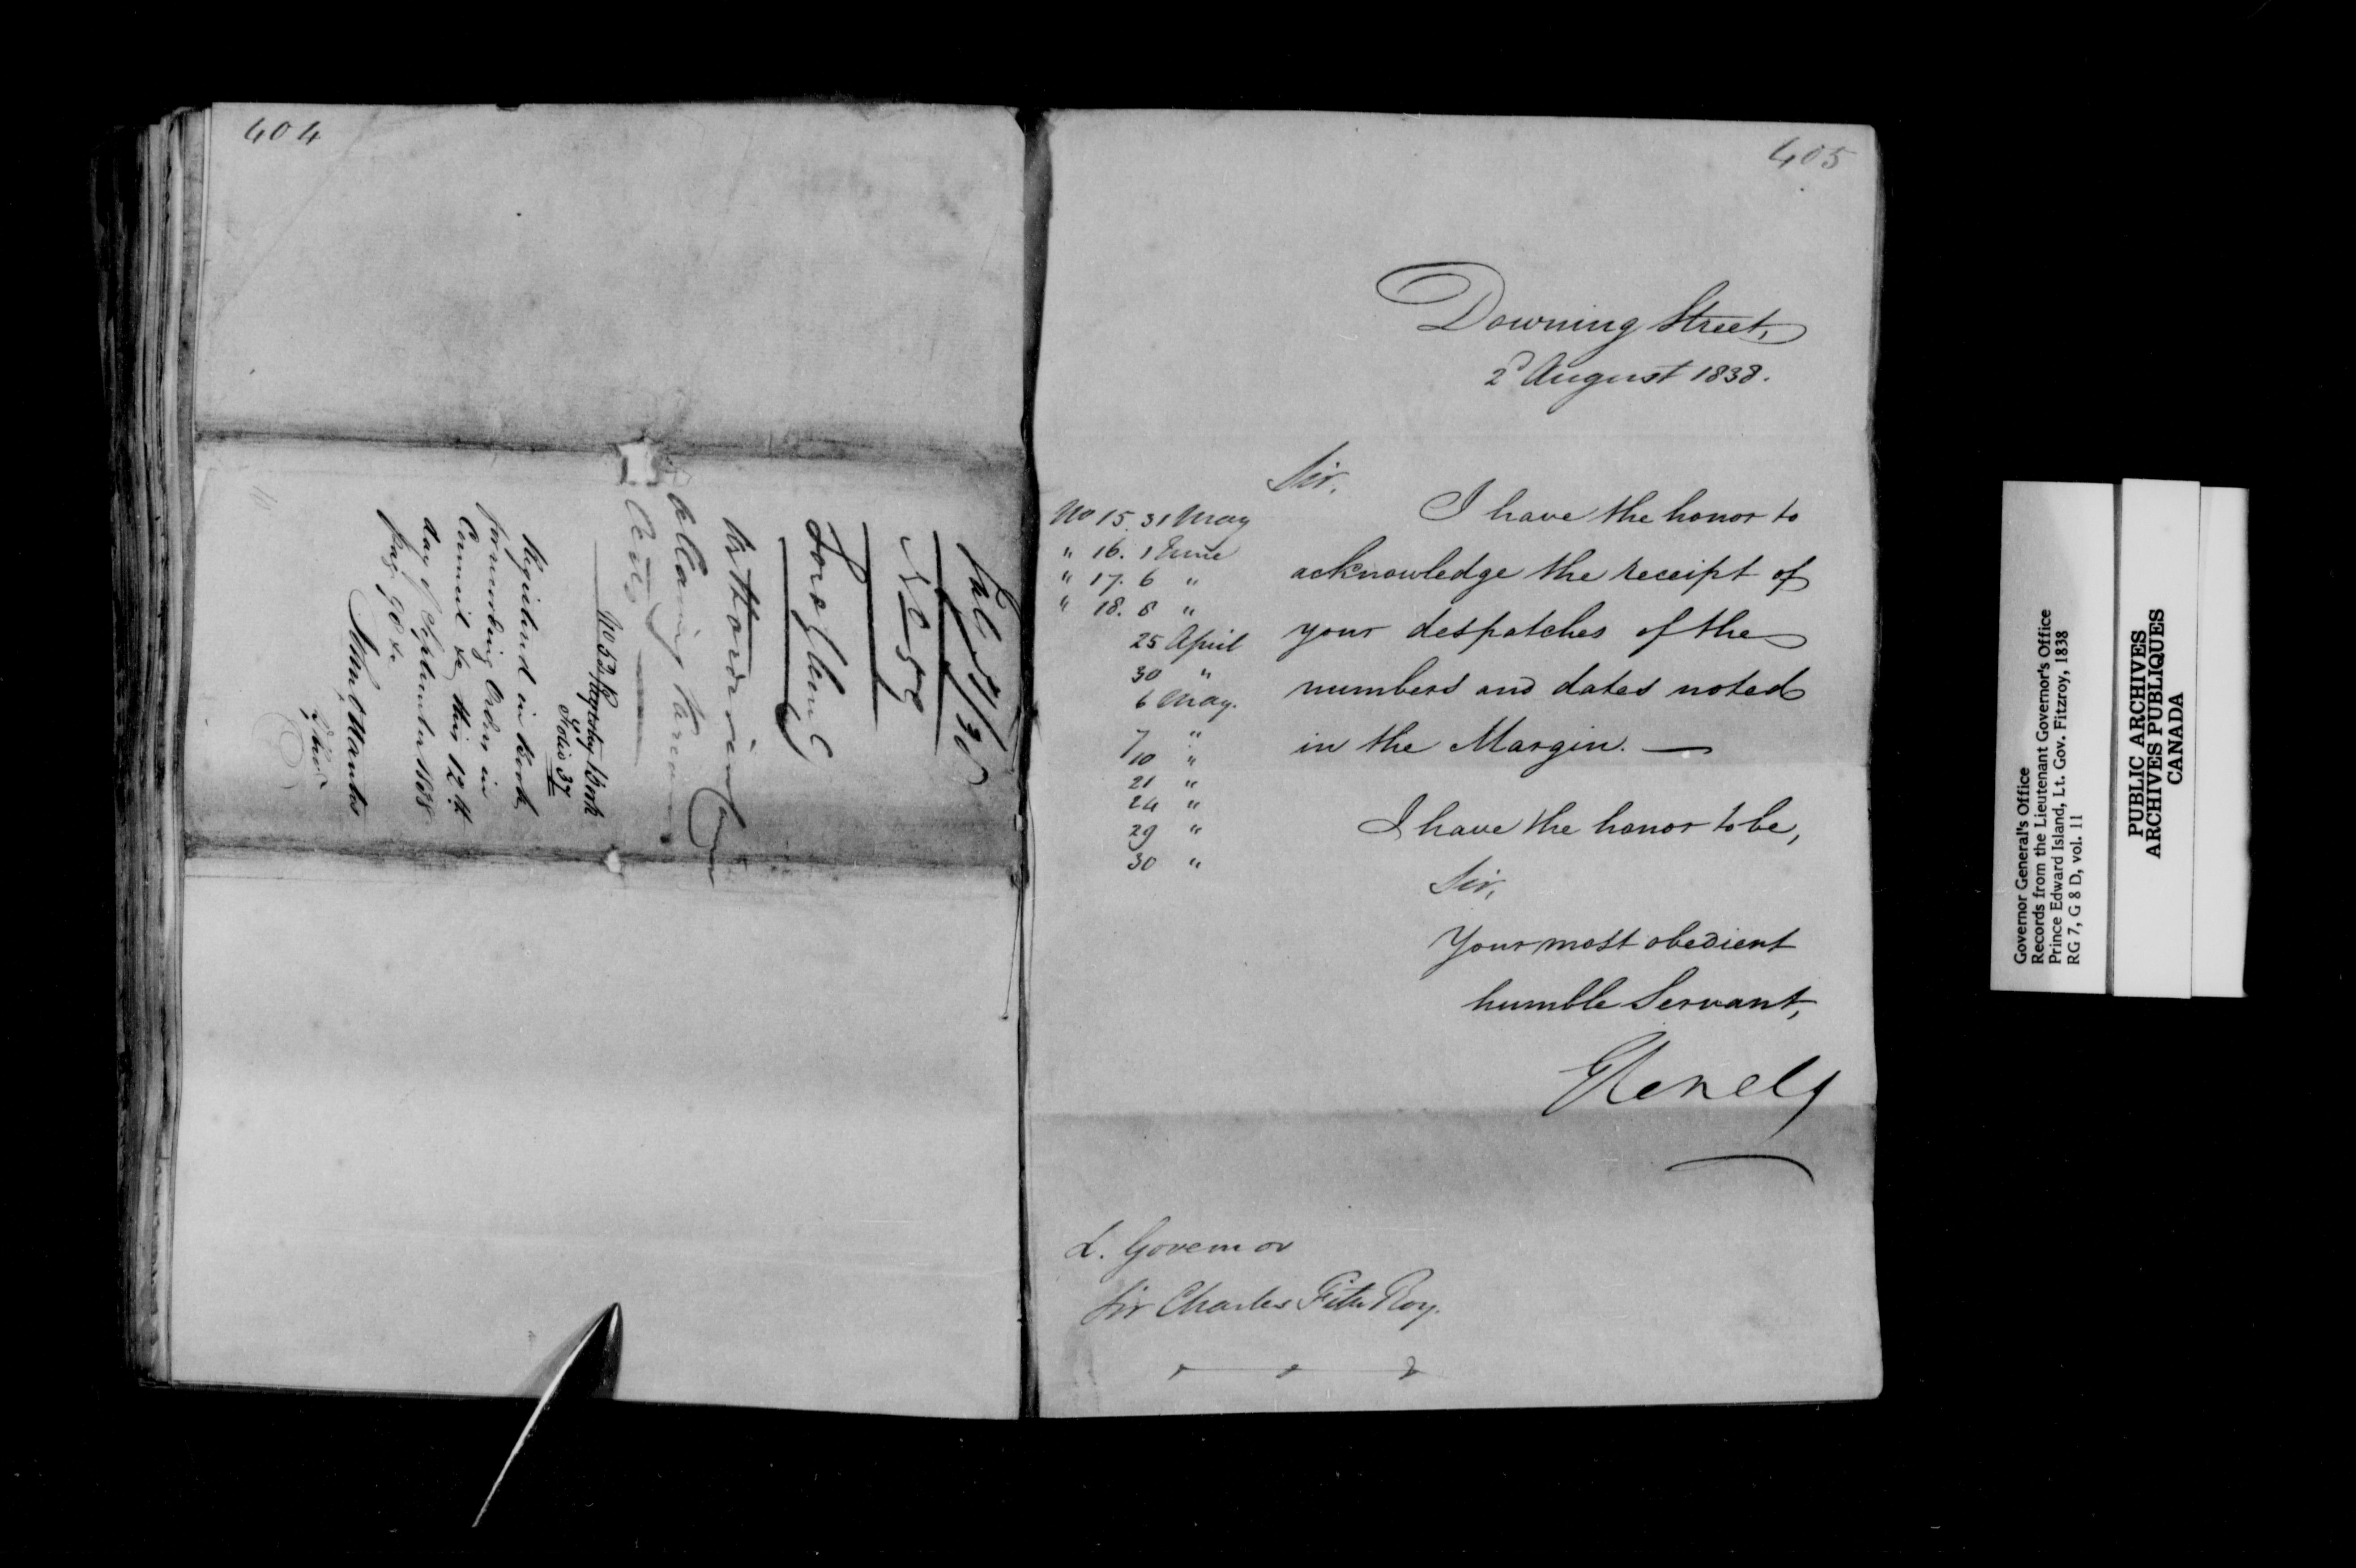 404
Lord Glenelg
No 53 Registry Book
Folio 37
Registered in Book
forwarding Orders in
Council &c this 12th
day of September 1838
page 90 &c
405
Downing Street,
2d August 1838.
Sir,
I have the honor to
acknowledge the receipt of
your despatches of the
numbers and dates noted
in the Margin. —
No 15. 31 May
" 16. 1 June
" 17. 6 "
" 18. 8 "
25 April
30 "
6 May.
7 "
10 "
21 "
24 "
29 "
30 "
I have the honor to be,
Sir,
Your most obedient
humble Servant,
Glenelg
L. Governor
Sir Charles FitzRoy.
Governor General's Office
Records from the Lieutenant Governor's Office
Prince Edward Island, Lt. Gov. Fitzroy, 1838
RG 7, G 8 D, vol. 11
PUBLIC ARCHIVES
ARCHIVES PUBLIQUES
CANADA